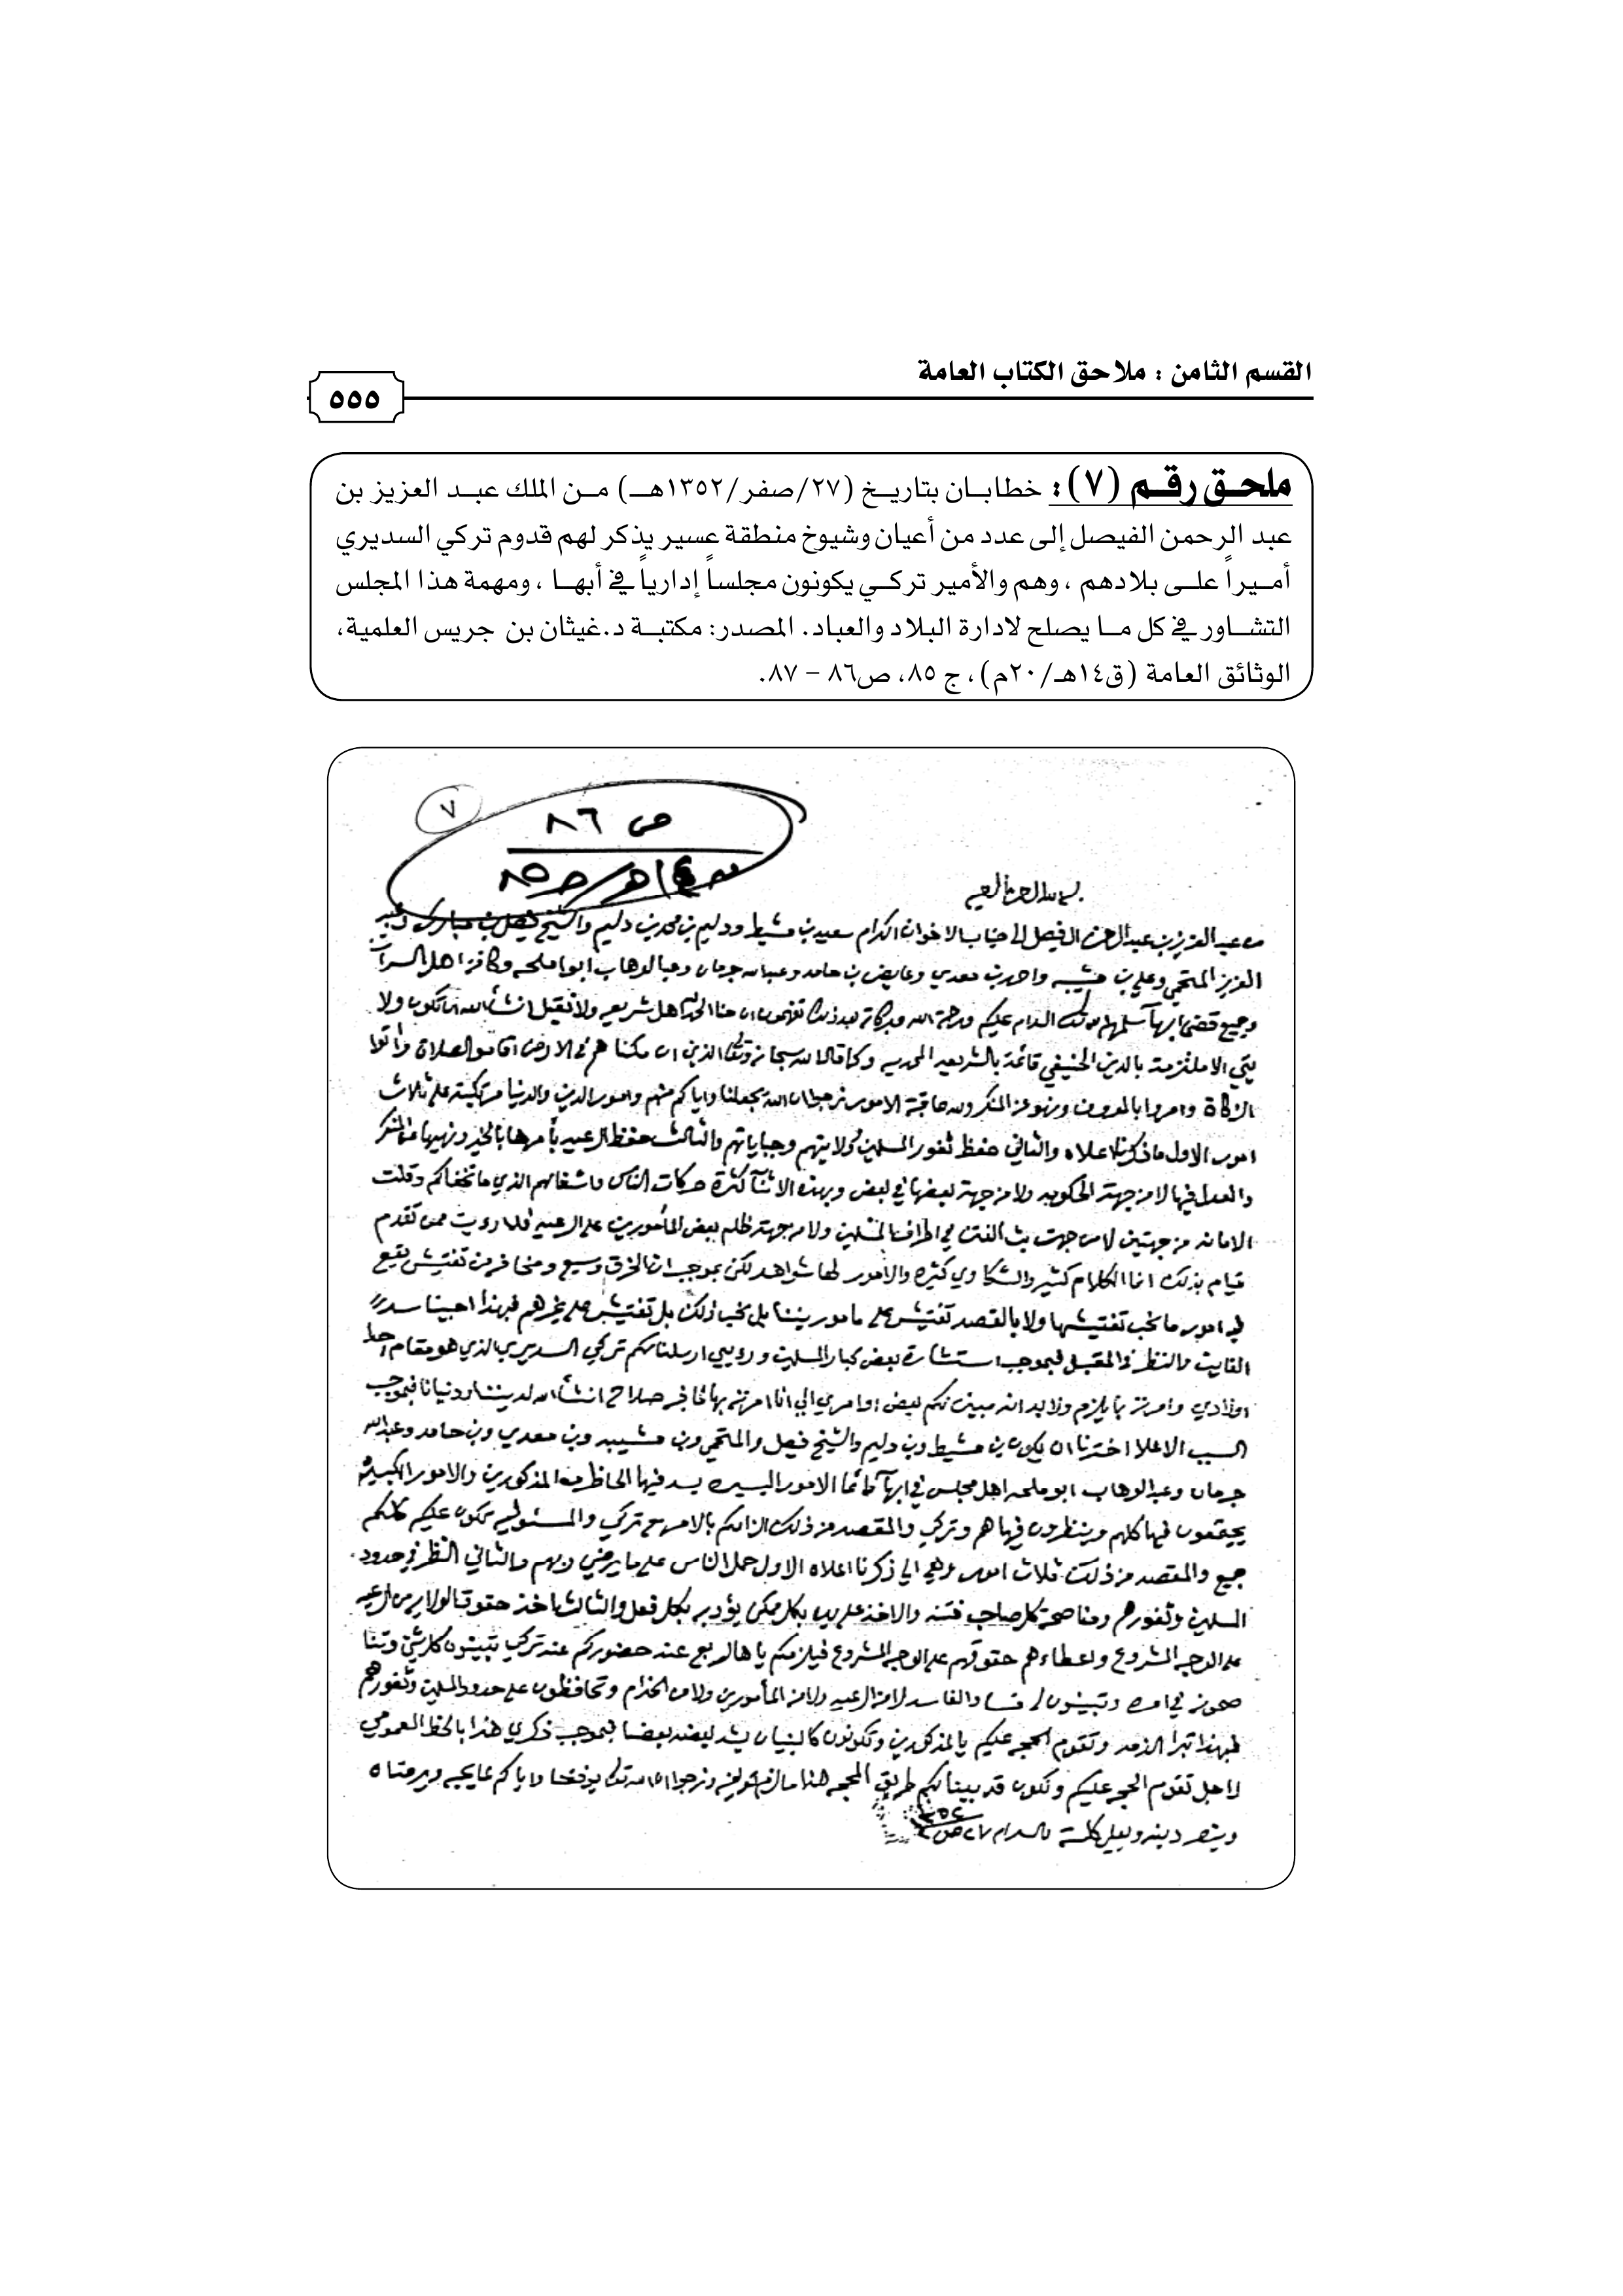 القسم الثامن : ملاحق الكتاب العامة
٥٥٥
ملحـق رقـم (٧): خطابـان بتاريـخ (٢٧/صفر/١٣٥٢هـ) مـن الملك عبـد العزيز بن
عبد الرحمن الفيصل إلى عدد من أعيان وشيوخ منطقة عسير يذكر لهم قدوم تركي السديري
أمـيراً علـى بلادهم ، وهم والأمير تركـي يكونون مجلساً إدارياً في أبهـا ، ومهمة هذا المجلس
التشـاور في كل مـا يصلح لادارة البلاد والعباد. المصدر: مكتبـة د.غيثان بن جريس العلمية،
الوثائق العامة (ق١٤هـ/٢٠م)، ج ٨٥، ص٨٦ – ٨٧.
٧
ص ٨٦
١٤هـ/ج٨٥
بسم الله الرحمن الرحيم
من عبد العزيز بن عبد الرحمن الفيصل الى جناب الاخوان الكرام سعيد بن مشيط ودليم بن محمد بن دليم والشيخ فيصل بن مبارك وعبد
العزيز المتحمي وعلي بن مشيبه واحمد بن معدي وعايض بن حامد وعبدالله جرمان وعبدالوهاب ابو ملحه وكافة اهل السراة
وجميع قضى ابها سلمهم الله تعالى السلام عليكم ورحمة الله وبركاته بعد ذلك تفهمون ان حنا اهل شريعه ولا نقبل انشاالله ان نكون ولا
الا ملتزمة بالدين الحنيفي قائمة بالشريعه المحمديه وكما قال الله سبحانه وتعالى الذين ان مكناهم في الارض اقاموا الصلاة واتوا
الزكاة وامروا بالمعروف ونهو عن المنكر ولله عاقبة الامور نرجوا ان الله يجعلنا واياكم منهم وامور الدين والدنيا مرتكبة على ثلاث
امور الاول ماذكرنا اعلاه والثاني حفظ ثغور المسلمين وولايتهم وجباياتهم والثالث حفظ الرعيه بأمرها بالخير ونهيها عن المنكر
والعدل فيها لا من جهة الحكومه ولا من جهة بعضها في بعض وبهذه الاثنآ كثرة حركات الناس واشغالهم الذي ما تخفاكم وقلت
الامانه من جهتين لا من جهت بث الفتن في اطراف المسلمين ولا من جهة ظلم بعض المأمورين على الرعيه فلا رويت ممن تقدم
قيام بذلك انما الكلام كثير والشكاوي كثيره والامور لها شواهد لكن بموجب ان الخرق وسيع ومخافة من تفتيش يقع
في امور ما نحب تفتيشها ولا بالقصد تفتيش على مامورينا بل نحب ذلك بل تفتيش على غيرهم فبهذا احببنا سد
الفايت والنظر في المقبل فبموجب استشارة بعض كبار المسلمين ورويي ارسلنا لكم تركي السديري الذي هو مقام احد
اولادي وامرته بما يلزم ولابد انه مبين لكم بعض اوامري الي انا امرته بها صلاح انشاالله لديننا ودنيانا فبموجب
السبب الاعلا اخترنا ان يكون بن مشيط وبن دليم والشيخ فيصل والمتحمي وبن مشيبه وبن معدي وبن حامد وعبدالله
جرمان وعبدالوهاب ابو ملحه اهل مجلس في ابها الامور اليسيره يسد فيها الحاظر من المذكورين والامور الكبيره
يجتمعون فيها كلهم وينظرون فيها هم وتركي والمقصد من ذلك الزامكم بالامر مع تركي والمسئوليه تكون عليكم كلكم
جميع والمقصد من ذلك ثلاث امور وهي الي ذكرنا اعلاه الاول حمل الناس على ما يرضي ربهم والثاني النظر في حدود
المسلمين وثغورهم ومناصحة كل صاحب فتنه والاخذ على يده بكل ممكن بكل فعل والثالث اخذ حقوق الولايه من الرعيه
على الوجه المشروع واعطاءهم حقوقهم على الوجه المشروع فيلزمكم عند حضوركم عند تركي تبينون كل شي
في امره وتبينون الفساد والفاسد لا من الرعيه ولا من المأمورين ولا من الخدام وتحافظون على حدود المسلمين وثغورهم
فبهذا تبرا الذمه وتقوم الحجه عليكم يالمذكورين وتكونون كالبنيان يشد بعضه بعضا فبموجب ذكري هذا بالخط العمومي
لاجل تقوم الحجه عليكم ونكون قد بينا لكم طريق المحجه هذا مالزم تعريفه ونرجوا الله تعالى يوفقنا واياكم لما يحبه ويرضاه
وينصر دينه ويعلي كلمته والسلام ٢٧ صفر ١٣٥٢